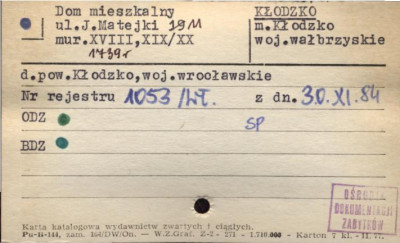 Dom mieszkalny KŁODZKO
ul.J.Matejki 19 m.Kłodzko
mur.XVIII,XIX/XX woj.wałbrzyskie
1739r
d.pow.Kłodzko,woj.wrocławskie
Nr rejestru 1053/Wł. z dn. 30.XI.84
ODZ
SP
BDZ
OŚRODEK
DOKUMENTACJI
ZABYTKÓW
Karta katalogowa wydawnictw zwartych i ciągłych.
Pu-B-144, zam. 164/DW/On. — W.Z.Graf. Z-2 - 271 - 1.710.000 - Karton 7 kl. - II. 77.